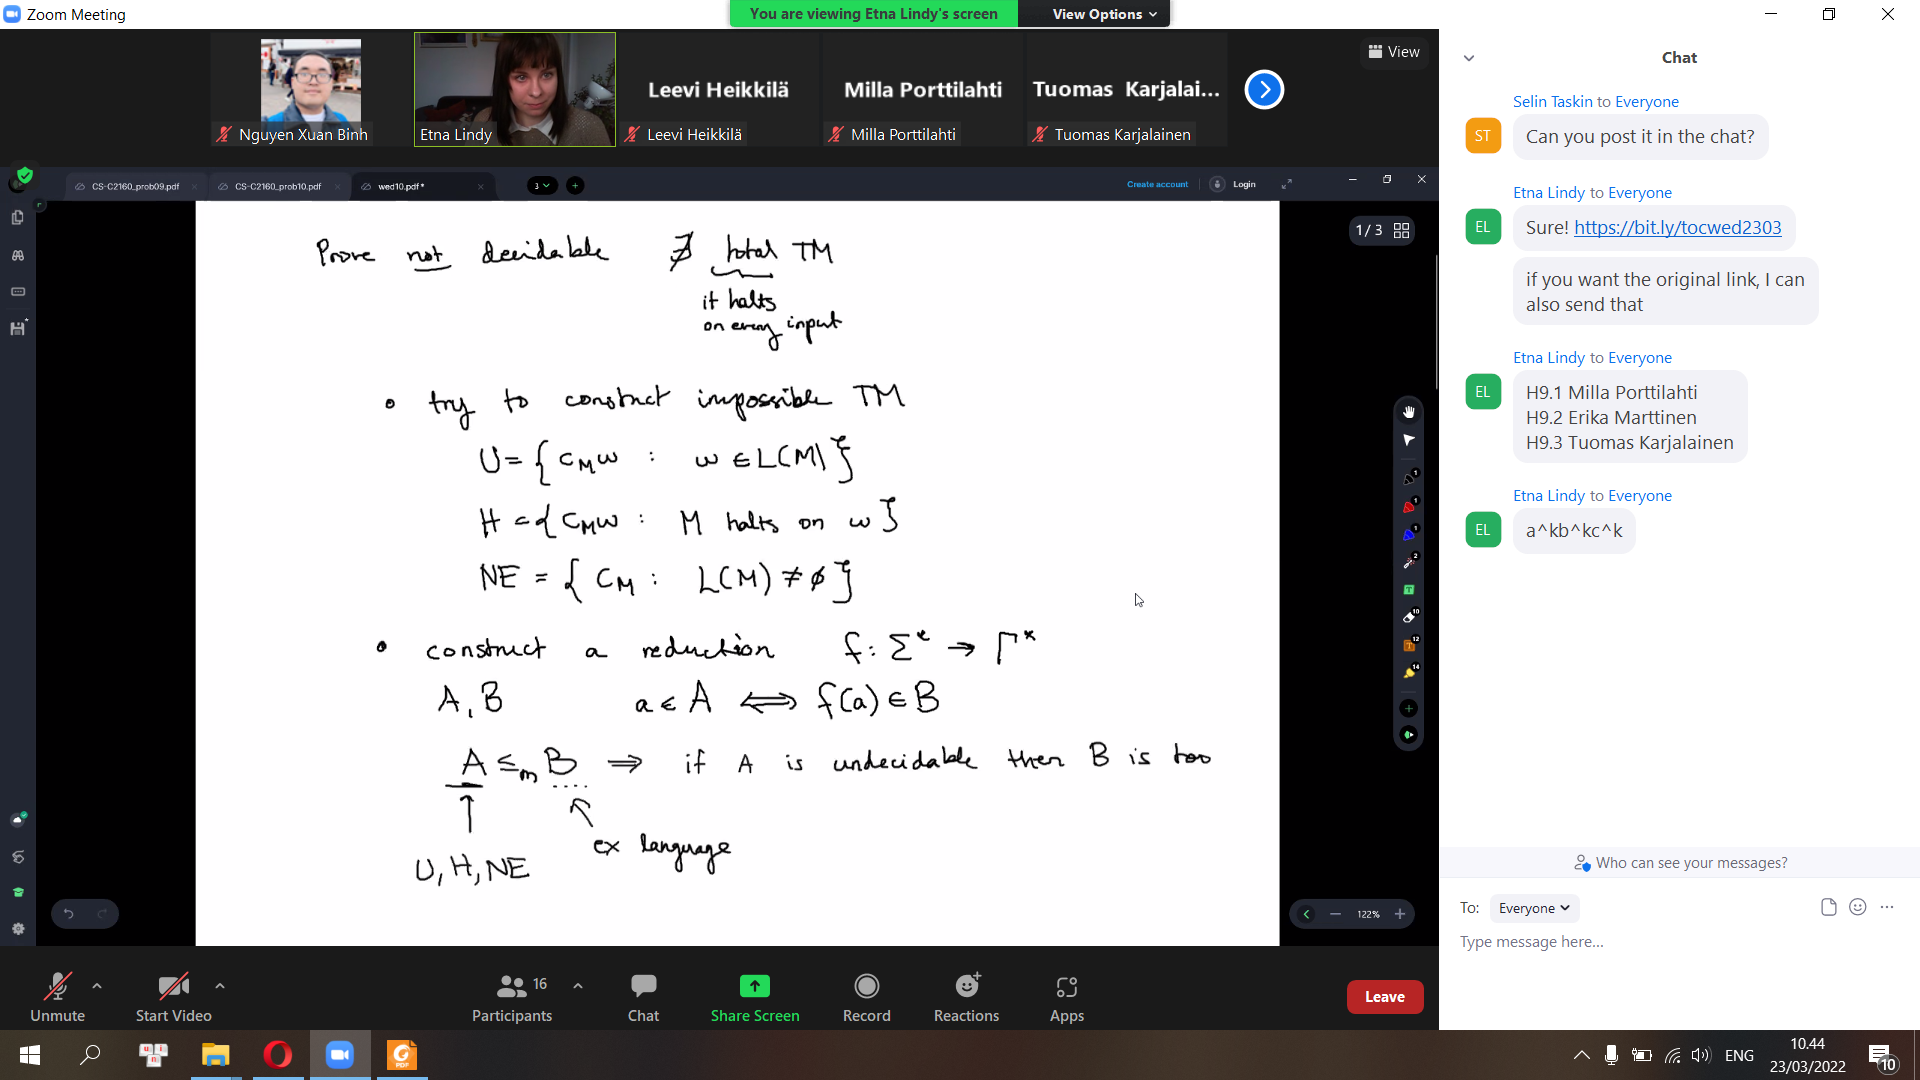 Zoom Meeting
You are viewing Etna Lindy's screen
View Options
View
Nguyen Xuan Binh
Etna Lindy
Leevi Heikkilä
Leevi Heikkilä
Milla Porttilahti
Milla Porttilahti
Tuomas Karjalai...
Tuomas Karjalainen
CS-C2160_prob09.pdf
CS-C2160_prob10.pdf
wed10.pdf *
3
Create account
Login
1 / 3
Prove not decidable ∄ total TM
it halts
on every input
• try to construct impossible TM
U = { c_M w : w ∈ L(M) }
H = { c_M w : M halts on w }
NE = { c_M : L(M) ≠ ∅ }
• construct a reduction f: Σ* → Γ*
A, B a ∈ A ⟺ f(a) ∈ B
A ≤_m B ⟹ if A is undecidable then B is too
ex language
U, H, NE
122%
Chat
Selin Taskin to Everyone
ST
Can you post it in the chat?
Etna Lindy to Everyone
EL
Sure! https://bit.ly/tocwed2303
if you want the original link, I can
also send that
Etna Lindy to Everyone
EL
H9.1 Milla Porttilahti
H9.2 Erika Marttinen
H9.3 Tuomas Karjalainen
Etna Lindy to Everyone
EL
a^kb^kc^k
Who can see your messages?
To: Everyone
Type message here...
Unmute
Start Video
16
Participants
Chat
Share Screen
Record
Reactions
Apps
Leave
ENG
10.44
23/03/2022
10